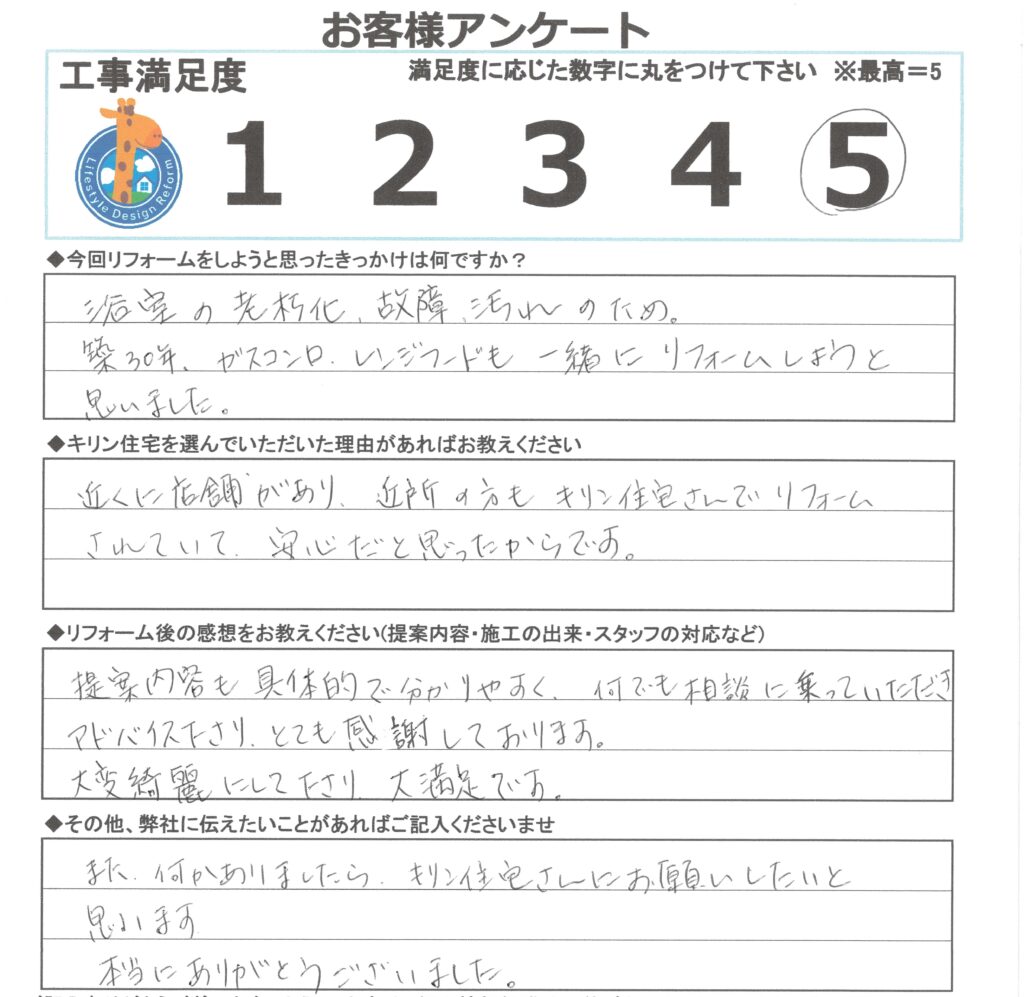 お客様アンケート
工事満足度
満足度に応じた数字に丸をつけて下さい ※最高＝5
1 2 3 4 5
Lifestyle Design Reform
◆今回リフォームをしようと思ったきっかけは何ですか？
浴室の老朽化、故障、汚れのため。
築30年、ガスコンロ、レンジフードも一緒にリフォームしようと
思いました。
◆キリン住宅を選んでいただいた理由があればお教えください
近くに店舗があり、近所の方もキリン住宅さんでリフォーム
されていて、安心だと思ったからです。
◆リフォーム後の感想をお教えください(提案内容・施工の出来・スタッフの対応など)
提案内容も具体的で分かりやすく、何でも相談に乗っていただき
アドバイス下さり、とても感謝しております。
大変綺麗にして下さり、大満足です。
◆その他、弊社に伝えたいことがあればご記入くださいませ
また、何かありましたら、キリン住宅さんにお願いしたいと
思います
本当にありがとうございました。